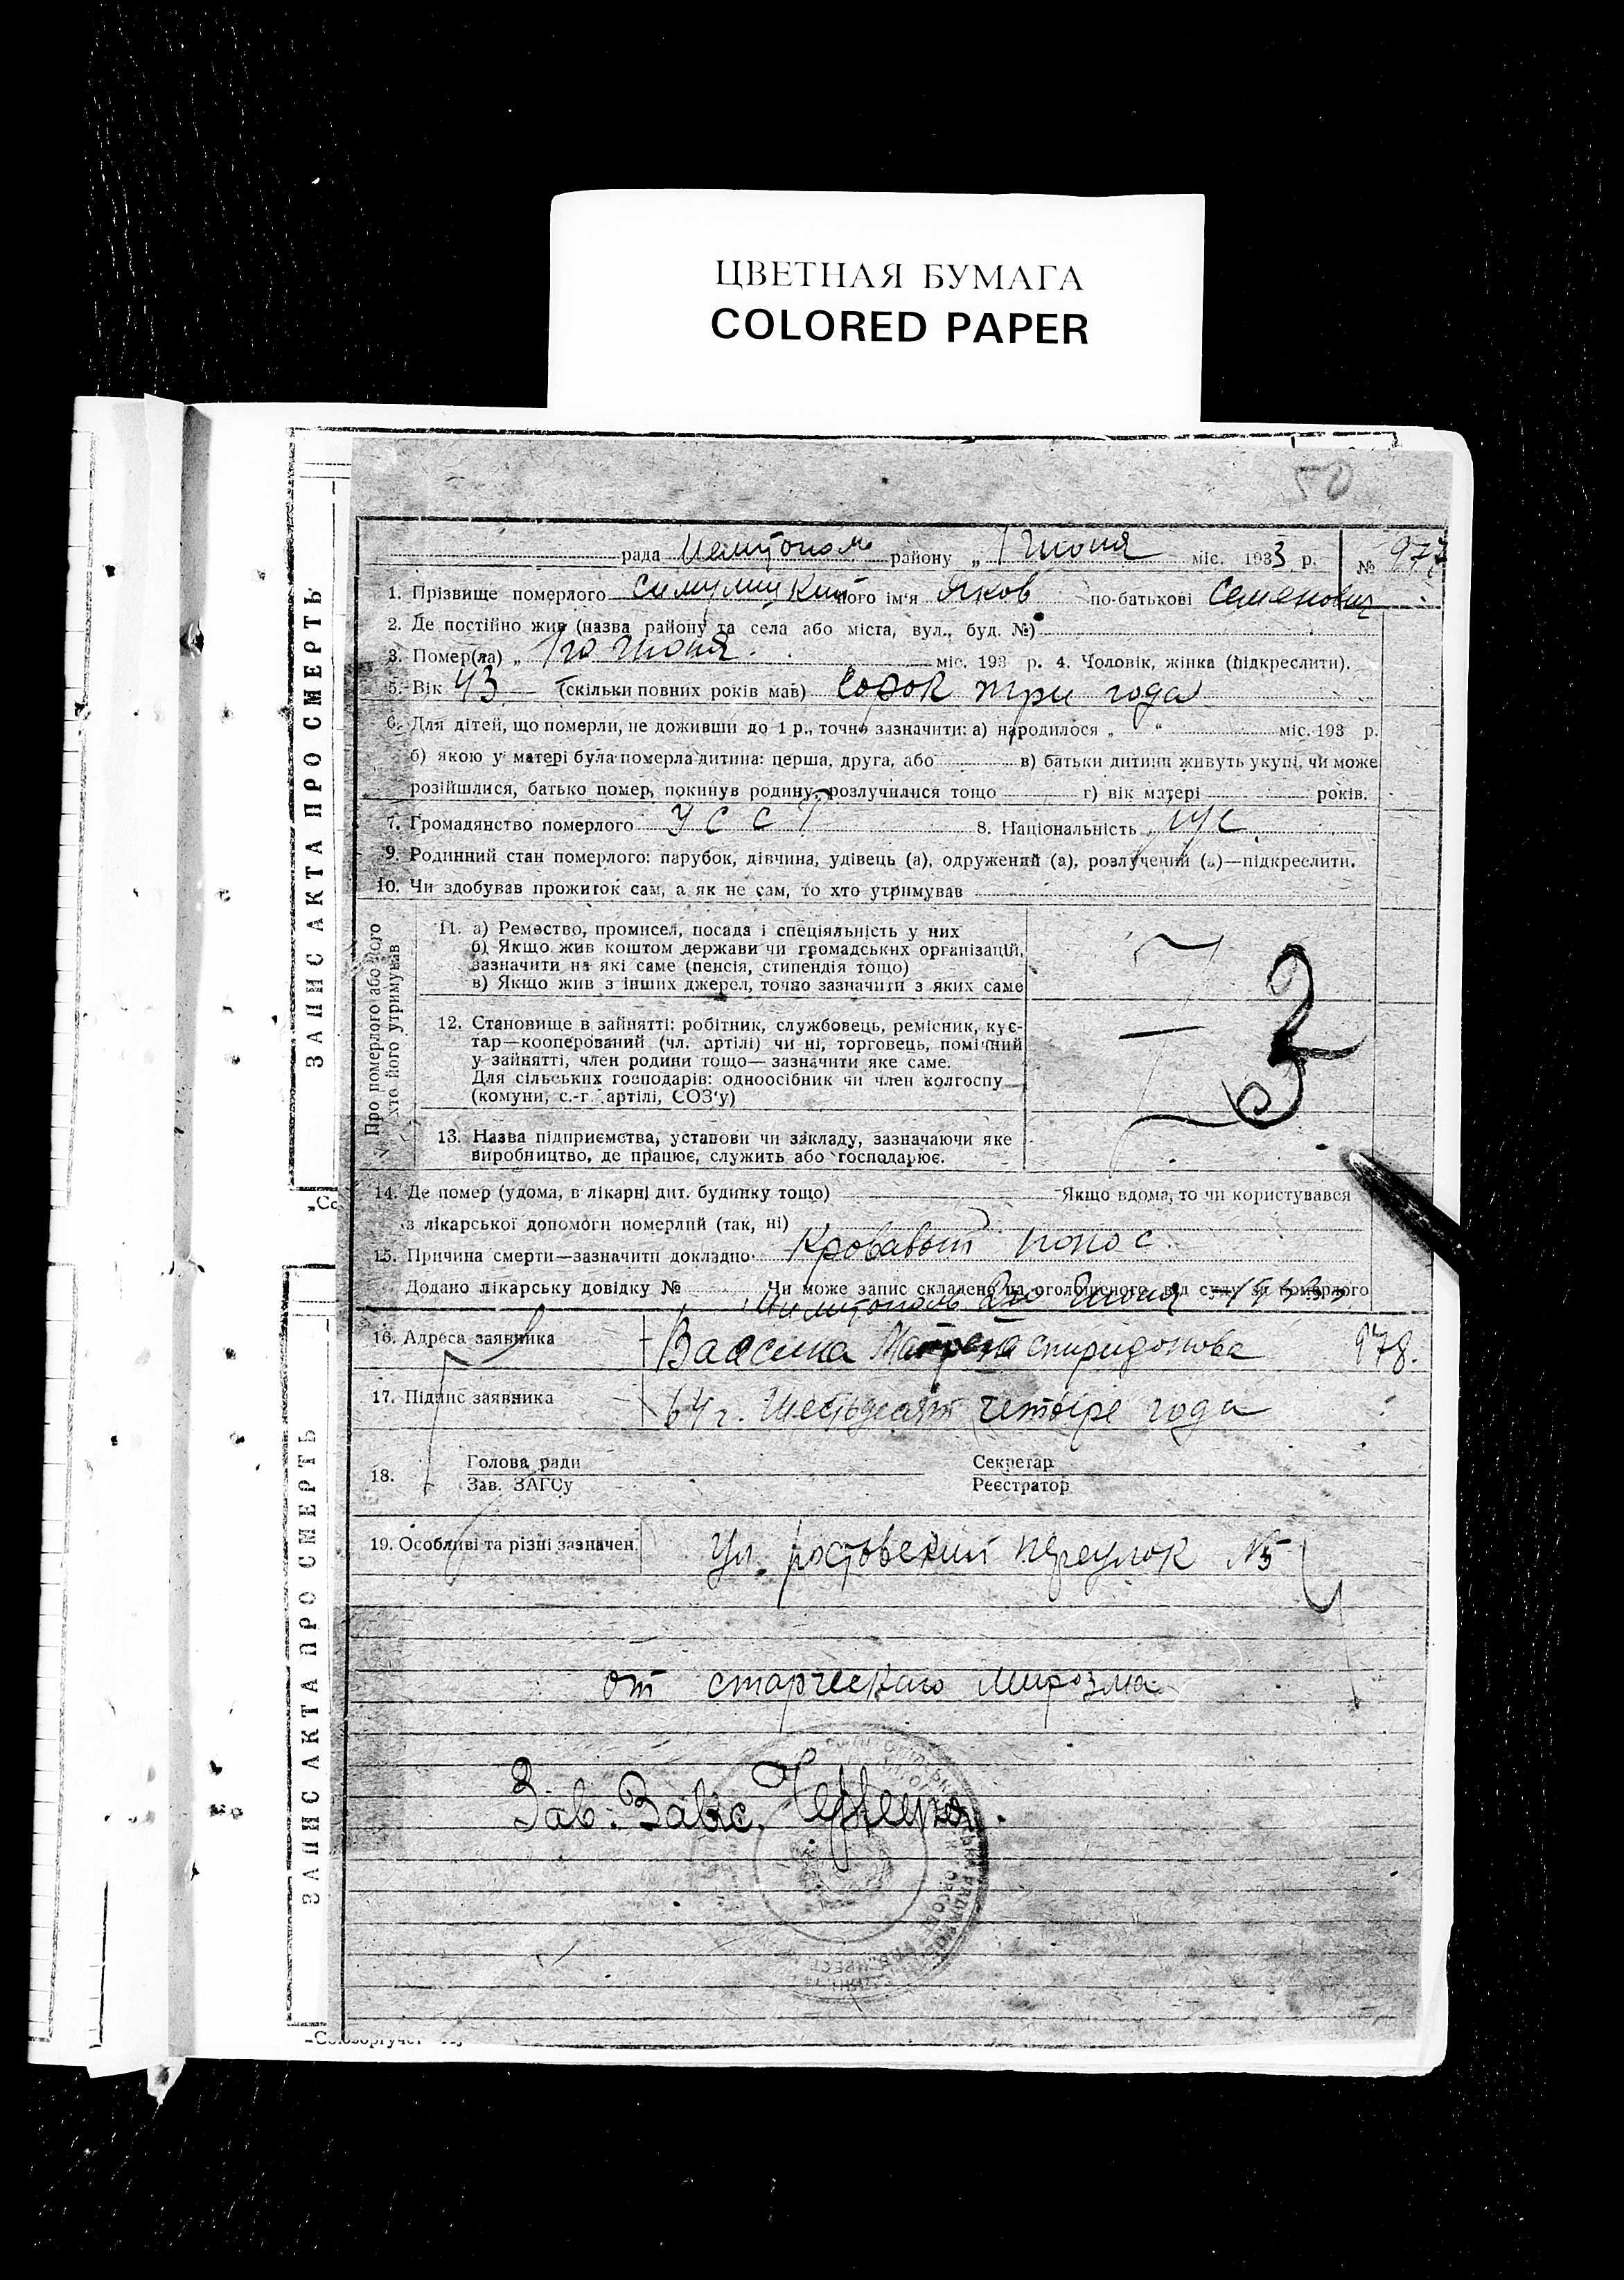 ЦВЕТНАЯ БУМАГА
COLORED PAPER
50
рада району „ 1 июня міс. 1933 р. № 977
1. Прізвище померлого його ім'я Яков по-батькові Семенович
2. Де постійно жив (назва району та села або міста, вул., буд. №)
3. Помер(ла) „ 1го июня. міс. 193 р. 4. Чоловік, жінка (підкреслити).
5. Вік 43 (скільки повних років мав) сорок три года
6. Для дітей, що померли, не доживши до 1 р., точно зазначити: а) народилося „ “ міс. 193 р.
б) якою у матері була померла дитина: перша, друга, або в) батьки дитини живуть укупі, чи може
розійшлися, батько помер, покинув родину, розлучилися тощо г) вік матері років.
7. Громадянство померлого УССР 8. Національність рус
9. Родинний стан померлого: парубок, дівчина, удівець (а), одружений (а), розлучений (а)—підкреслити.
10. Чи здобував прожиток сам, а як не сам, то хто утримував
Про померлого або того
хто його утримував
11. а) Ремество, промисел, посада і спеціяльність у них
б) Якщо жив коштом держави чи громадських організацій,
зазначити на які саме (пенсія, стипендія тощо)
в) Якщо жив з інших джерел, точно зазначити з яких саме
12. Становище в зайнятті: робітник, службовець, ремісник, кус-
тар—кооперований (чл. артілі) чи ні, торговець, помічний
у зайнятті, член родини тощо—зазначити яке саме.
Для сільських господарів: одноосібник чи член колгоспу
(комуни, с.-г. артілі, СОЗ'у)
13. Назва підприємства, установи чи закладу, зазначаючи яке
виробництво, де працює, служить або господарює.
14. Де помер (удома, в лікарні дит. будинку тощо) Якщо вдома, то чи користувався
з лікарської допомоги померлий (так, ні)
15. Причина смерти—зазначити докладно Кровавый понос
Додано лікарську довідку № Чи може запис складено на оголошеного від суду за померлого
Мелитополь 2го Июня 1933
16. Адреса заявника Матрена Спиридонова 978.
17. Підпис заявника 64 г. Шестьдесят четыре года
18. Голова ради Секретар
Зав. ЗАГСу Реєстратор
19. Особливі та різні зазначен. Ул. ростовский переулок №5
от старческаго миразма
Зав. Загс.
ЗАПИС АКТА ПРО СМЕРТЬ
ЗАПИС АКТА ПРО СМЕРТЬ